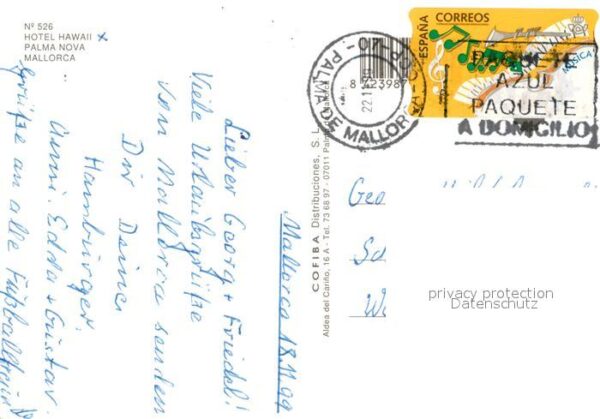 Nº 526
HOTEL HAWAII
PALMA NOVA
MALLORCA
Mallorca 18.11.99
Lieber Georg + Friedel!
Viele Urlaubsgrüße
von Mallorca senden
Dir Deine
Hamburger
Anni. Edda + Gustav.
Grüße an alle Fußballfreunde
COFIBA Distribuciones, S. L.
Aldea del Cariño, 16 A - Tel. 73 68 97 - 07011 Palma de Mallorca
ESPAÑA
CORREOS
MÚSICA
PALMA DE MALLORCA
22.11.99
PAQUETE
AZUL
PAQUETE
A DOMICILIO
Geo
privacy protection
Datenschutz